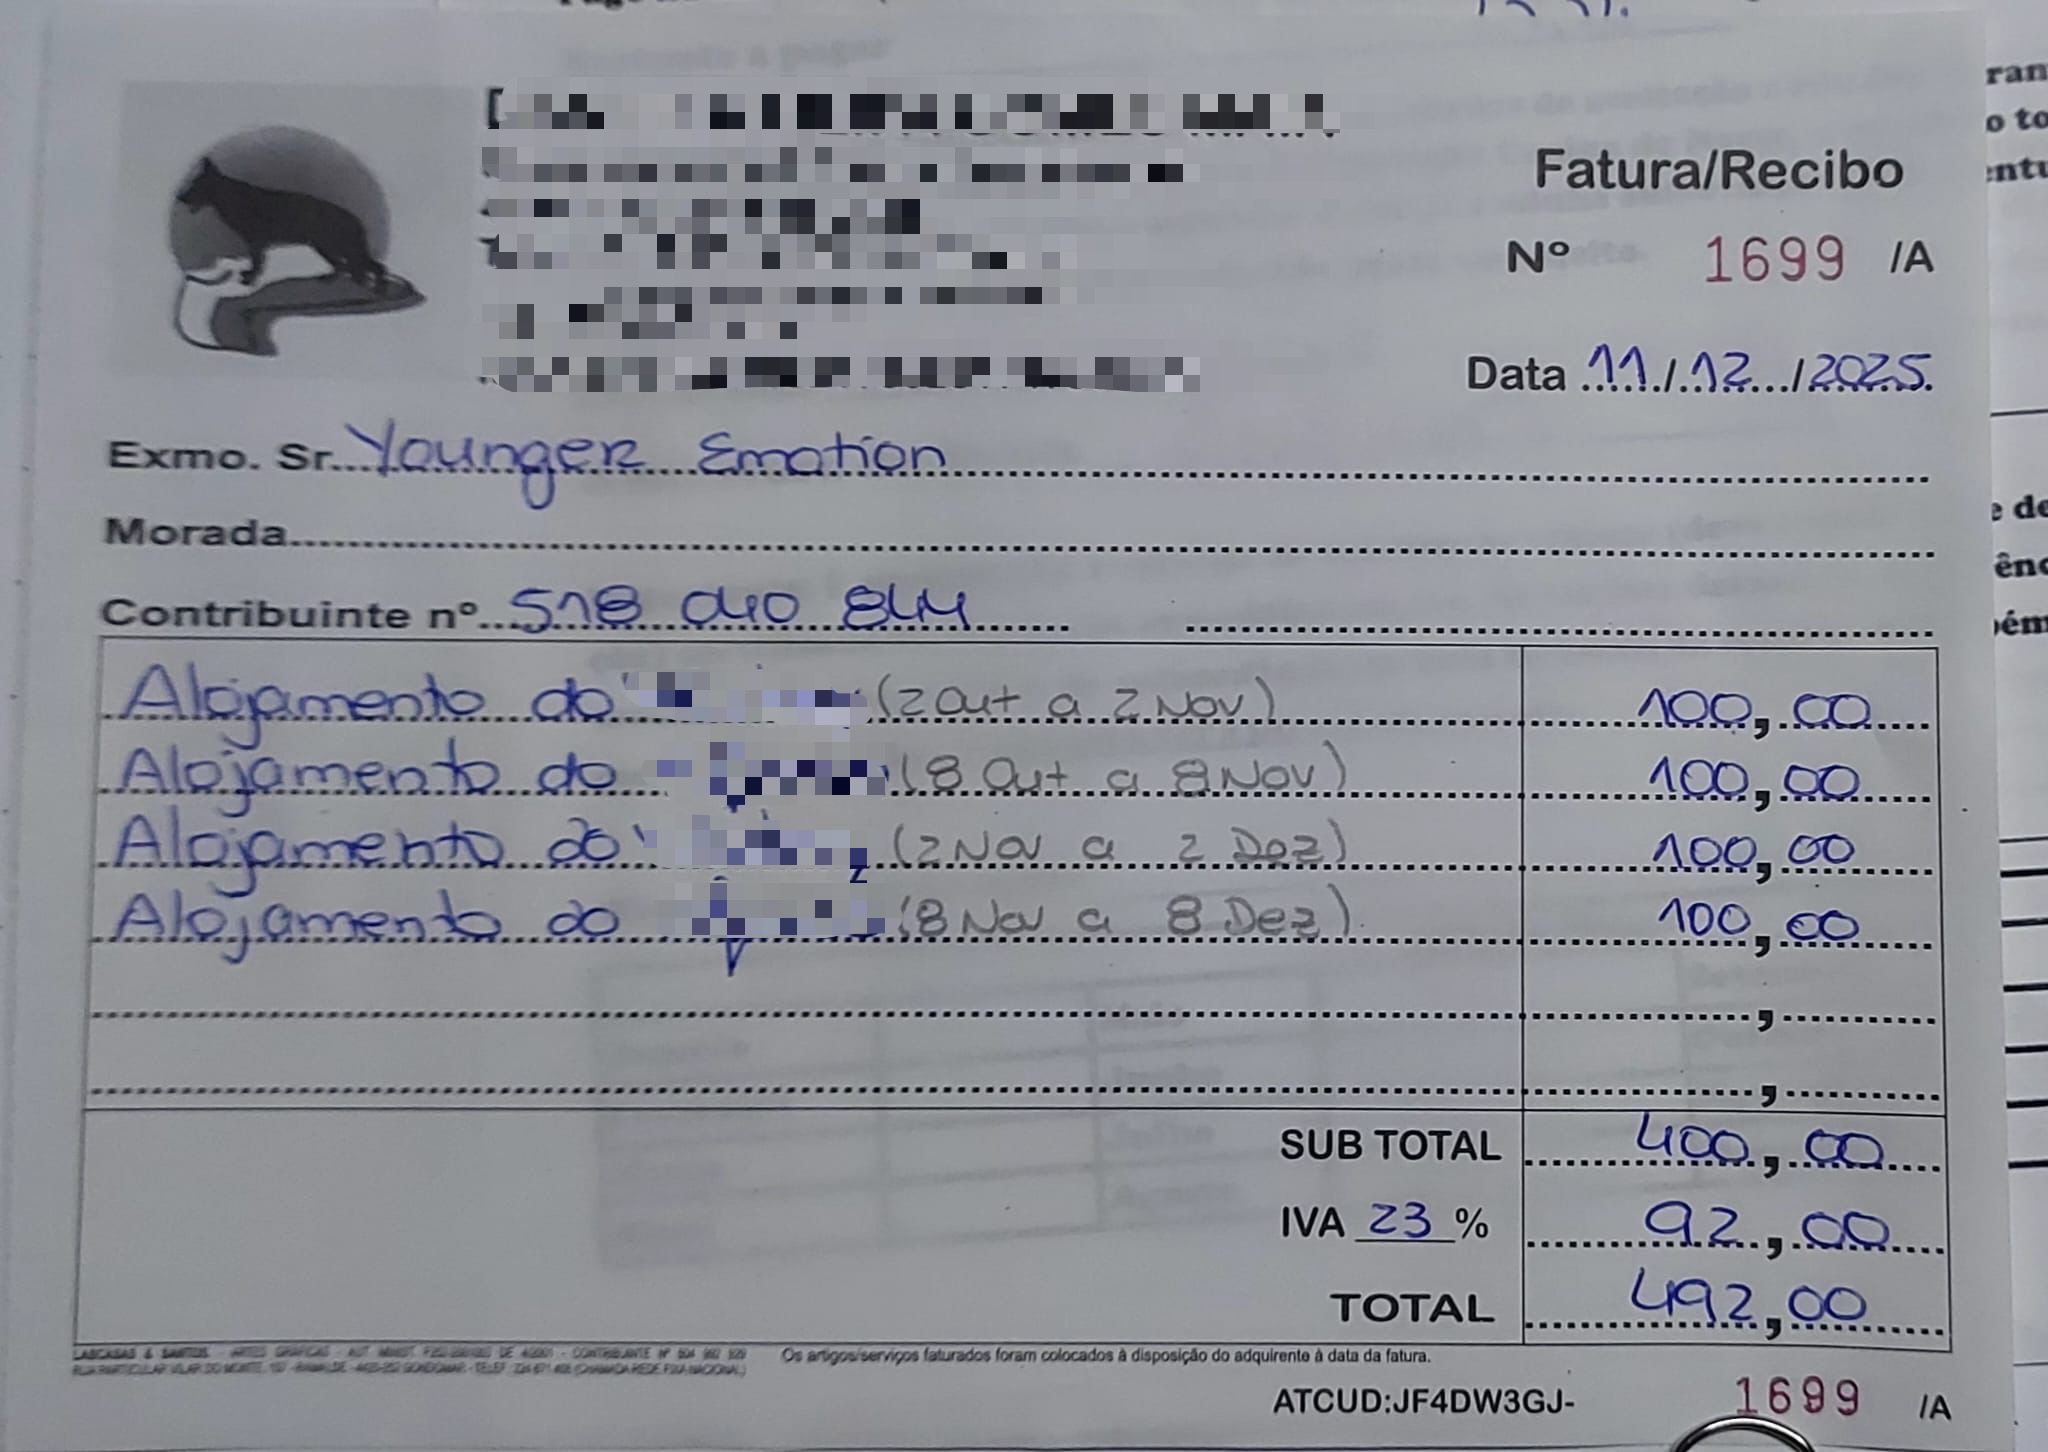 Fatura/Recibo
Nº 1699 /A
Data 11/12/2025
Exmo. Sr. Younger Emotion
Morada
Contribuinte nº 518 040 844
Alojamento do (2 Out a 2 Nov) 100,00
Alojamento do (8 Out a 8 Nov) 100,00
Alojamento do (2 Nov a 2 Dez) 100,00
Alojamento do (8 Nov a 8 Dez) 100,00
SUB TOTAL 400,00
IVA 23 % 92,00
TOTAL 492,00
LASCASAS & SANTOS - ARTES GRÁFICAS
Os artigos/serviços faturados foram colocados à disposição do adquirente à data da fatura.
ATCUD:JF4DW3GJ- 1699 /A